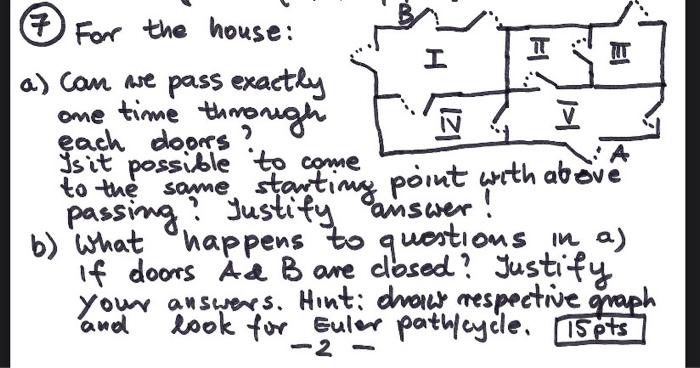 7 For the house:
B
I
II
III
IV
V
A
a) Can we pass exactly
one time through
each doors?
Is it possible to come
to the same starting point with above
passing? Justify answer!
b) What happens to questions in a)
if doors A & B are closed? Justify
your answers. Hint: draw respective graph
and look for Euler path/cycle. 15 pts
- 2 -